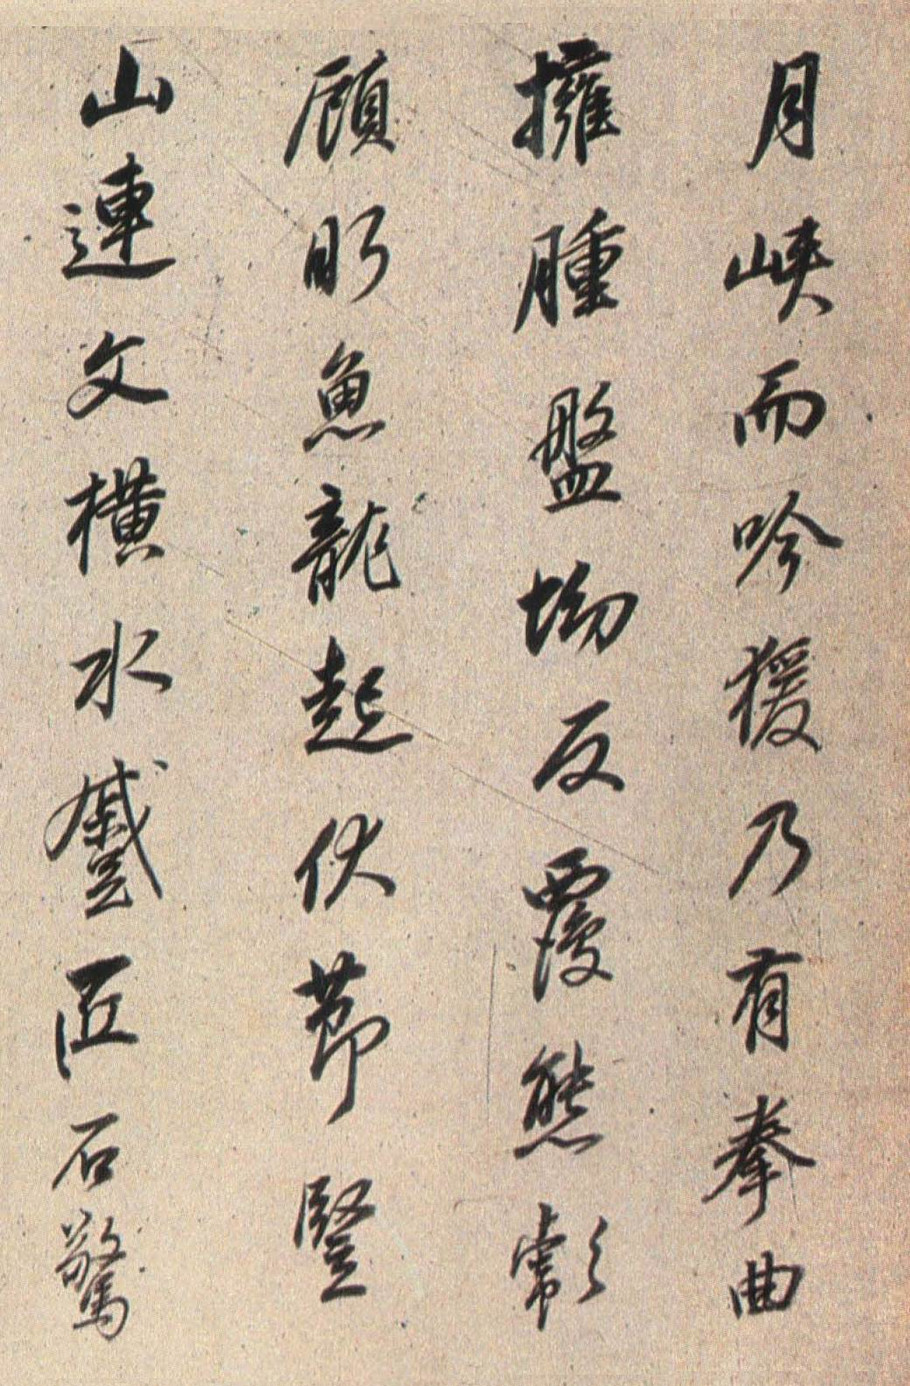 月峽而吟猨乃有拳曲
擁腫盤坳反覆熊彪
顧眄魚龍起伏節豎
山連文橫水蹙匠石驚